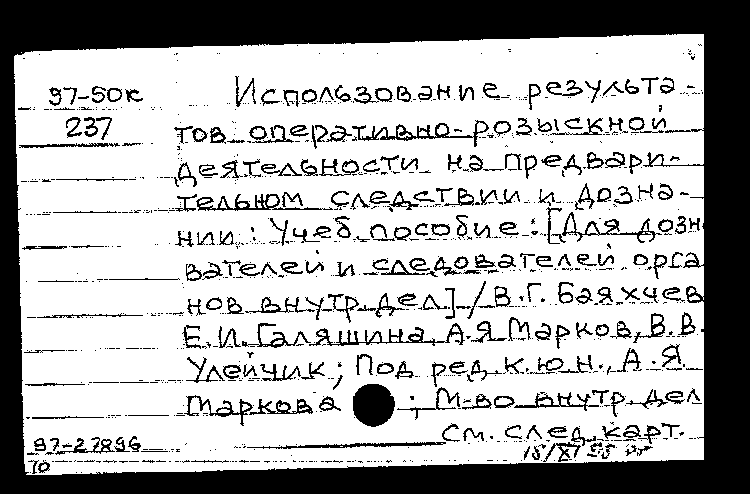 97-50к
237
Использование результа-
тов оперативно-розыскной
деятельности на предвари-
тельном следствии и дозна-
нии: Учеб. пособие: [Для дозн
вателей и следователей орга
нов внутр. дел] / В.Г. Баяхчев
Е.И. Галяшина, А.Я Марков, В.В.
Улейчик; Под ред. к.ю.н., А.Я
Маркова ; М-во внутр. дел
См. след. карт.
97-27896
10